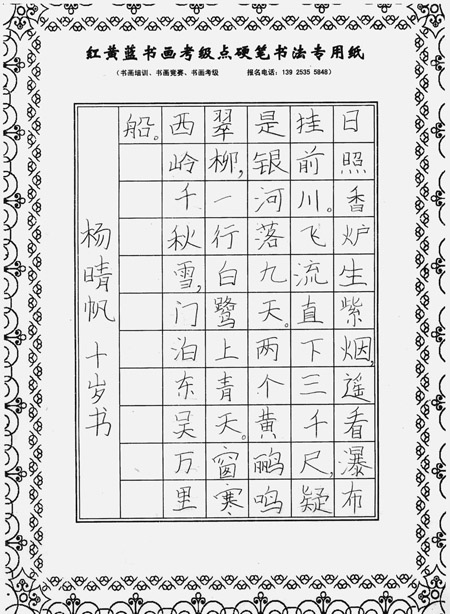 红黄蓝书画考级点硬笔书法专用纸
（书画培训、书画竞赛、书画考级 报名电话：139 2535 5848）
日照香炉生紫烟,遥看瀑布
挂前川。飞流直下三千尺,疑
是银河落九天。两个黄鹂鸣
翠柳,一行白鹭上青天。窗寒
西岭千秋雪,门泊东吴万里
船。
杨晴帆 十岁书